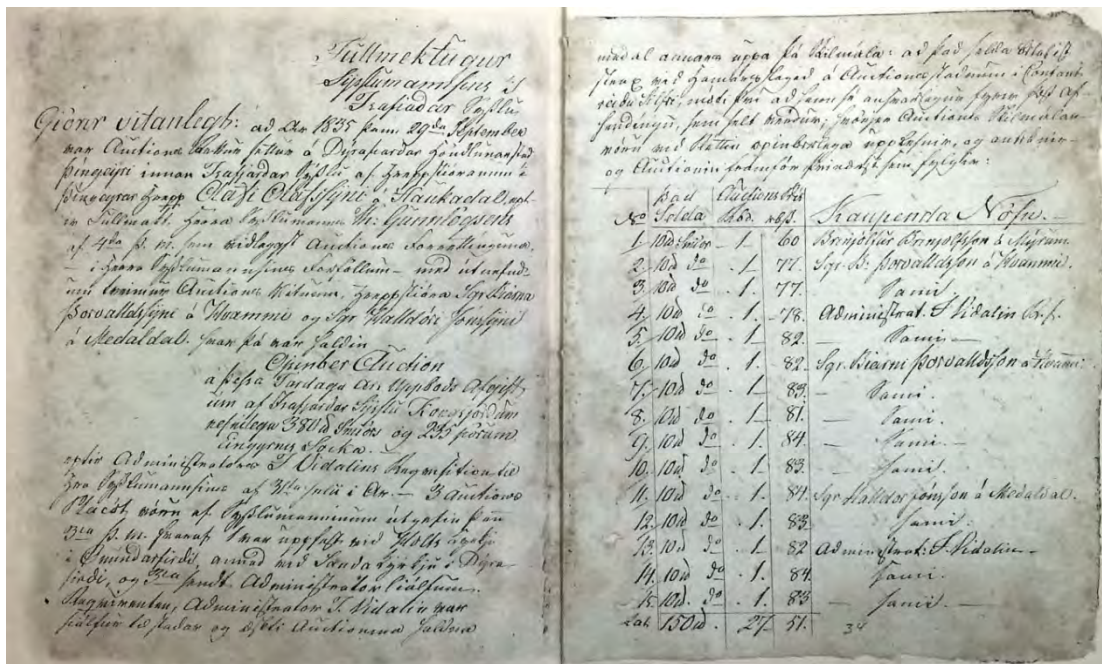 Fullmektugur
Sýslumannsins í
Ísafiardar Sýslu
Giörir vitanlegt: ad Ár 1835 þann 29da September
var Auctions Rettur settur á Dýrafiardar Höndlunarstad
Þingeyri innan Ísafiardar Sýslu af Hreppstioranum í
Þingeyrar Hrepp Olafi Olafssyni á Haukadal ept-
ir Fullmakt Herra Sýslumanns
af 4da þ. m. sem vidlagdst Auctions Forrettninguna
— í Herra Sýslumannsins Forföllum — med útnefnd-
um tveimur Auctions Vitnum, Hreppstióra Sgr Biarna
Þorvalldssyni á Hvammi og Sgr Halldóri Jónssyni
á Medaldal. Hvar þá var haldin
Openber Auction
á þessa Fardaga Árs Uppbods Afgift-
um af Ísafiardar Sýslu Kongsjördum
nefnilega 380 Smiörs og 235 pörum
Socka.
eptir Administrators J Vidalins Reqvisitione til
Hra Sýslumannsins af Julii í Ár — 3 Auctions
Placöt vóru af Sýslumanninum útgefin þann
3ia þ. m. hvaraf 1 var uppfest vid Holts Kyrkju
í Önundarfirdi, annad vid Sanda Kyrkju í Dýra-
firdi, og 3dia sendt Administrator siálfum.
Reqvirenten, Administrator J. Vidalin var
siálfur til stadar og æskti Auctionina haldna
medal annars uppá þá Skilmála: ad það sellda betalist
strax vid Hamarslagid á Auctions stadnum í Contant
reidu Silfri, móti því ad hann sé ansvarlegur fyrir þess Af-
hendingu, sem sellt verdur; hvörjir Auctions Skilmálar
vóru vid Rettinn opinberlega upplesnir, og
og Auctionin framfór þvínæst sem fylgir:
No Það Sellda Auctions Verd Rbd. rbsz. Kaupenda Nöfn. —
1. 10 Smiör - 1. 60 Brinjólfur Brinjolfsson á Mýrum.
2. 10 do . 1. 77. Sgr. B: Þorvalldsson á Hvammi.
3. 10 do . 1. 77. — Sami.
4. 10 do . 1. 78. Administrat. J Vidalin
5. 10 do . 1. 82. — Sami. —
6. 10 do . 1. 82. Sgr. Biarni Þorvalldsson á Hvammi
7. 10 do . 1. 83. — Sami.
8. 10 do . 1. 81. — Sami.
9. 10 do . 1. 84. — Sami. —
10. 10 do . 1. 83. — Sami.
11. 10 do . 1. 84. Sgr Halldor Jónsson á Medaldal.
12. 10 do . 1. 83. — Sami.
13. 10 do . 1. 82 Administrat: J. Vidalin —
14. 10 do . 1. 84. — Sami.
15. 10 do . 1. 83 — Sami. —
Lat. 150 . 27. 51.
34